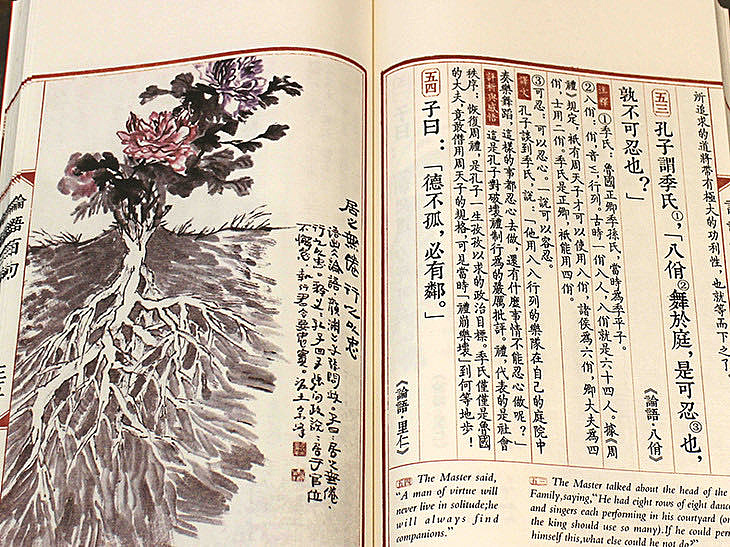 所追求的道將帶有極大的功利性，也就等而下之了。
五三 孔子謂季氏①，「八佾②舞於庭，是可忍③也，
孰不可忍也？」 《論語·八佾》
注釋 ①季氏：魯國正卿季孫氏，當時為季平子。
②八佾：佾，音 行列。古時一佾八人，八佾就是六十四人。據《周
禮》規定，祇有周天子才可以使用八佾，諸侯為六佾，卿大夫為四
佾，士用二佾。季氏是正卿，祇能用四佾。
③可忍：可以忍心。一說可以容忍。
譯文 孔子談到季氏，說：「他用八八行列的樂隊在自己的庭院中
奏樂舞蹈，這樣的事都忍心去做，還有什麼事情不能忍心做呢？」
評析與感悟 這是孔子對破壞禮制行為的嚴厲批評。禮，代表的是社會
秩序；恢復周禮，是孔子一生孜孜以求的政治目標。季氏僅僅是魯國
的大夫，竟敢僭用周天子的規格，可見當時「禮崩樂壞」到何等地步！
五四 子曰：「德不孤，必有鄰。」 《論語·里仁》
五三 The Master talked about the head of the
Family,saying,"He had eight rows of eight dance
and singers each performing in his courtyard (on
the king should use so many).If he could per
himself this,what else could he not do?"
五四 The Master said,
"A man of virtue will
never live in solitude;he
will always find
companions."
居之無倦行之以忠
語出論語顏淵子張問政子曰居之無倦
行之以忠 釋義 孔子曰 子張問政 居於官位
不懈怠 執行君令要忠實
論語百句